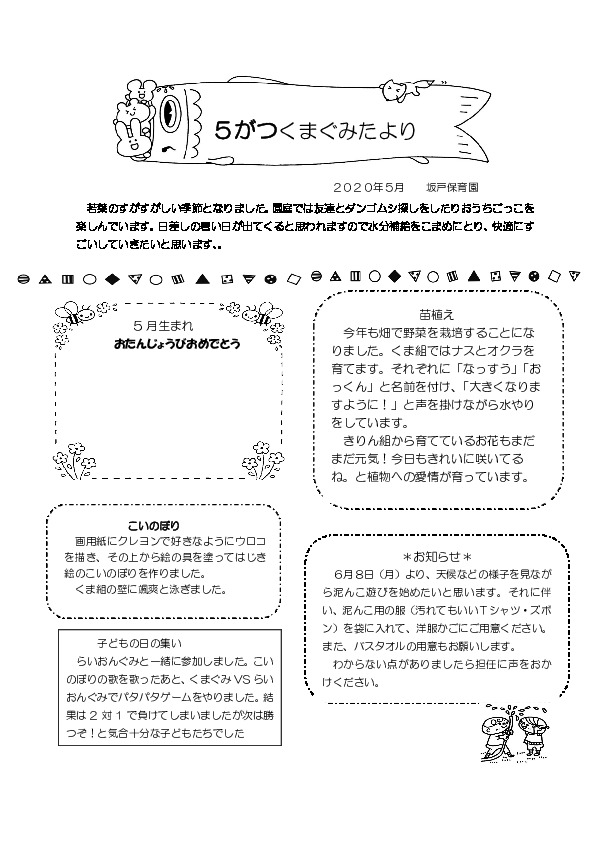 ５がつくまぐみたより
２０２０年５月　　坂戸保育園
若葉のすがすがしい季節となりました。園庭では友達とダンゴムシ探しをしたりおうちごっこを
楽しんでいます。日差しの暑い日が出てくると思われますので水分補給をこまめにとり、快適にす
ごしていきたいと思います、。
５月生まれ
おたんじょうびおめでとう
こいのぼり
画用紙にクレヨンで好きなようにウロコ
を描き、その上から絵の具を塗ってはじき
絵のこいのぼりを作りました。
くま組の壁に颯爽と泳ぎました。
子どもの日の集い
らいおんぐみと一緒に参加しました。こい
のぼりの歌を歌ったあと、くまぐみVSらい
おんぐみでパタパタゲームをやりました。結
果は２対１で負けてしまいましたが次は勝
つぞ！と気合十分な子どもたちでした
苗植え
今年も畑で野菜を栽培することにな
りました。くま組ではナスとオクラを
育てます。それぞれに「なっすう」「お
っくん」と名前を付け、「大きくなりま
すように！」と声を掛けながら水やり
をしています。
きりん組から育てているお花もまだ
まだ元気！今日もきれいに咲いてる
ね。と植物への愛情が育っています。
＊お知らせ＊
６月８日（月）より、天候などの様子を見なが
ら泥んこ遊びを始めたいと思います。それに伴
い、泥んこ用の服（汚れてもいいTシャツ・ズボ
ン）を袋に入れて、洋服かごにご用意ください。
また、バスタオルの用意もお願いします。
わからない点がありましたら担任に声をおか
けください。